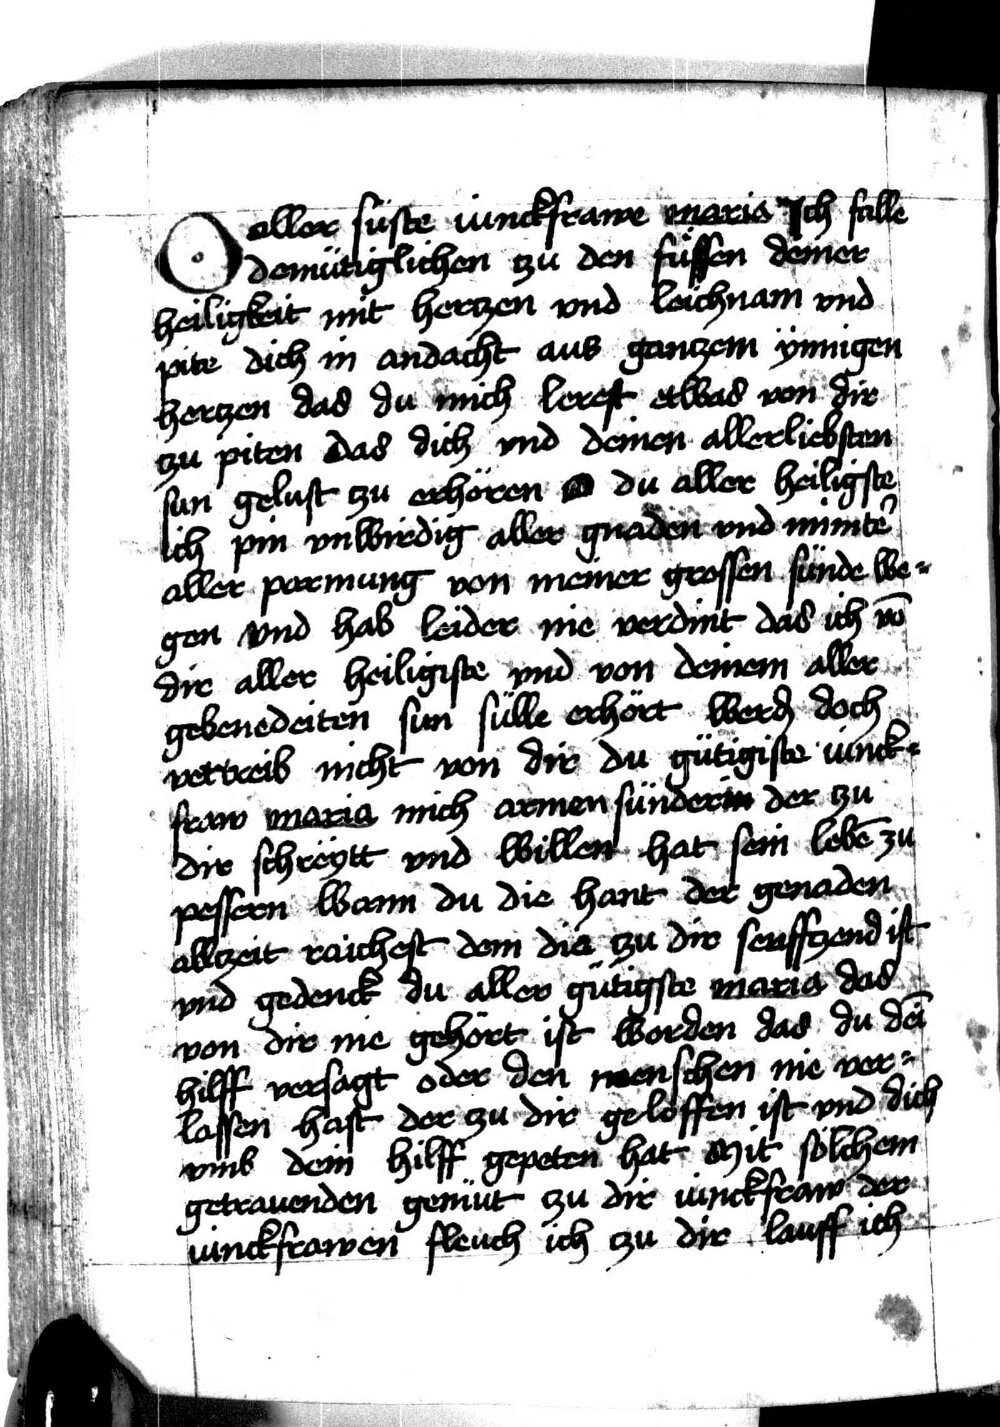 O aller süste iunckfrawe maria Ich falle
demütiglichen tzu den füssen deiner
heiligkeit mit hertzen vnd leichnam vnd
pite dich in andacht aus gantzem ynnigen
hertzen das du mich lerest etwas von dir
tzu piten das dich vnd deinen allerliebsten
sun gelust tzu erhören O du aller heiligste
ich pin vnwirdig aller gnaden vnd
aller parmung von meiner grossen sünde we-
gen vnd hab leider nie verdint das ich vō
dir aller heiligiste vnd von deinem aller
gebenedeiten sun sülle erhört werdꝫ doch
vertreib nicht von dir du gütigiste iunck-
fraw maria mich armen sünderin der tzu
dir schreytt vnd willen hat sein lebē zu
pessern wann du die hant der genaden
alltzeit raichest dem die tzu dir seufftzend ist
vnd gedenck du aller gütigste maria das
von dir nie gehört ist worden das du dei͂
hilff versagt oder den menschen nie ver-
lassen hast der zu dir geloffen ist vnd dich
vmb dein hilff gepeten hat Mit sölchem
getrauenden gemüt tzu dir iunckfraw der
iunckfrawen fleuch ich tzu dir lauff ich